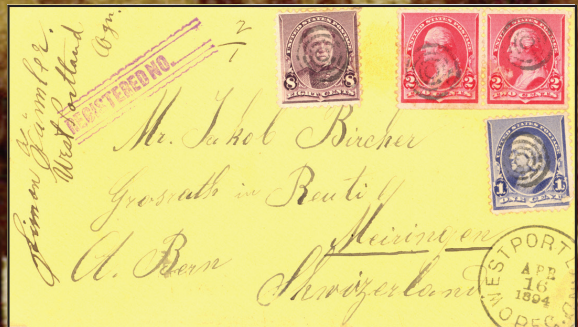 Simon
West Portland
Ogn.
REGISTERED NO.
2
1
UNITED STATES POSTAGE
8 8
EIGHT CENTS
UNITED STATES POSTAGE
2 2
TWO CENTS
UNITED STATES POSTAGE
2 2
TWO CENTS
UNITED STATES POSTAGE
1 1
ONE CENT
Mr. Jakob Bircher
Grosrath in Reuti
Meiringen
Ct. Bern
Shwizerland
WEST PORTLAND
APR
16
1894
OREG.